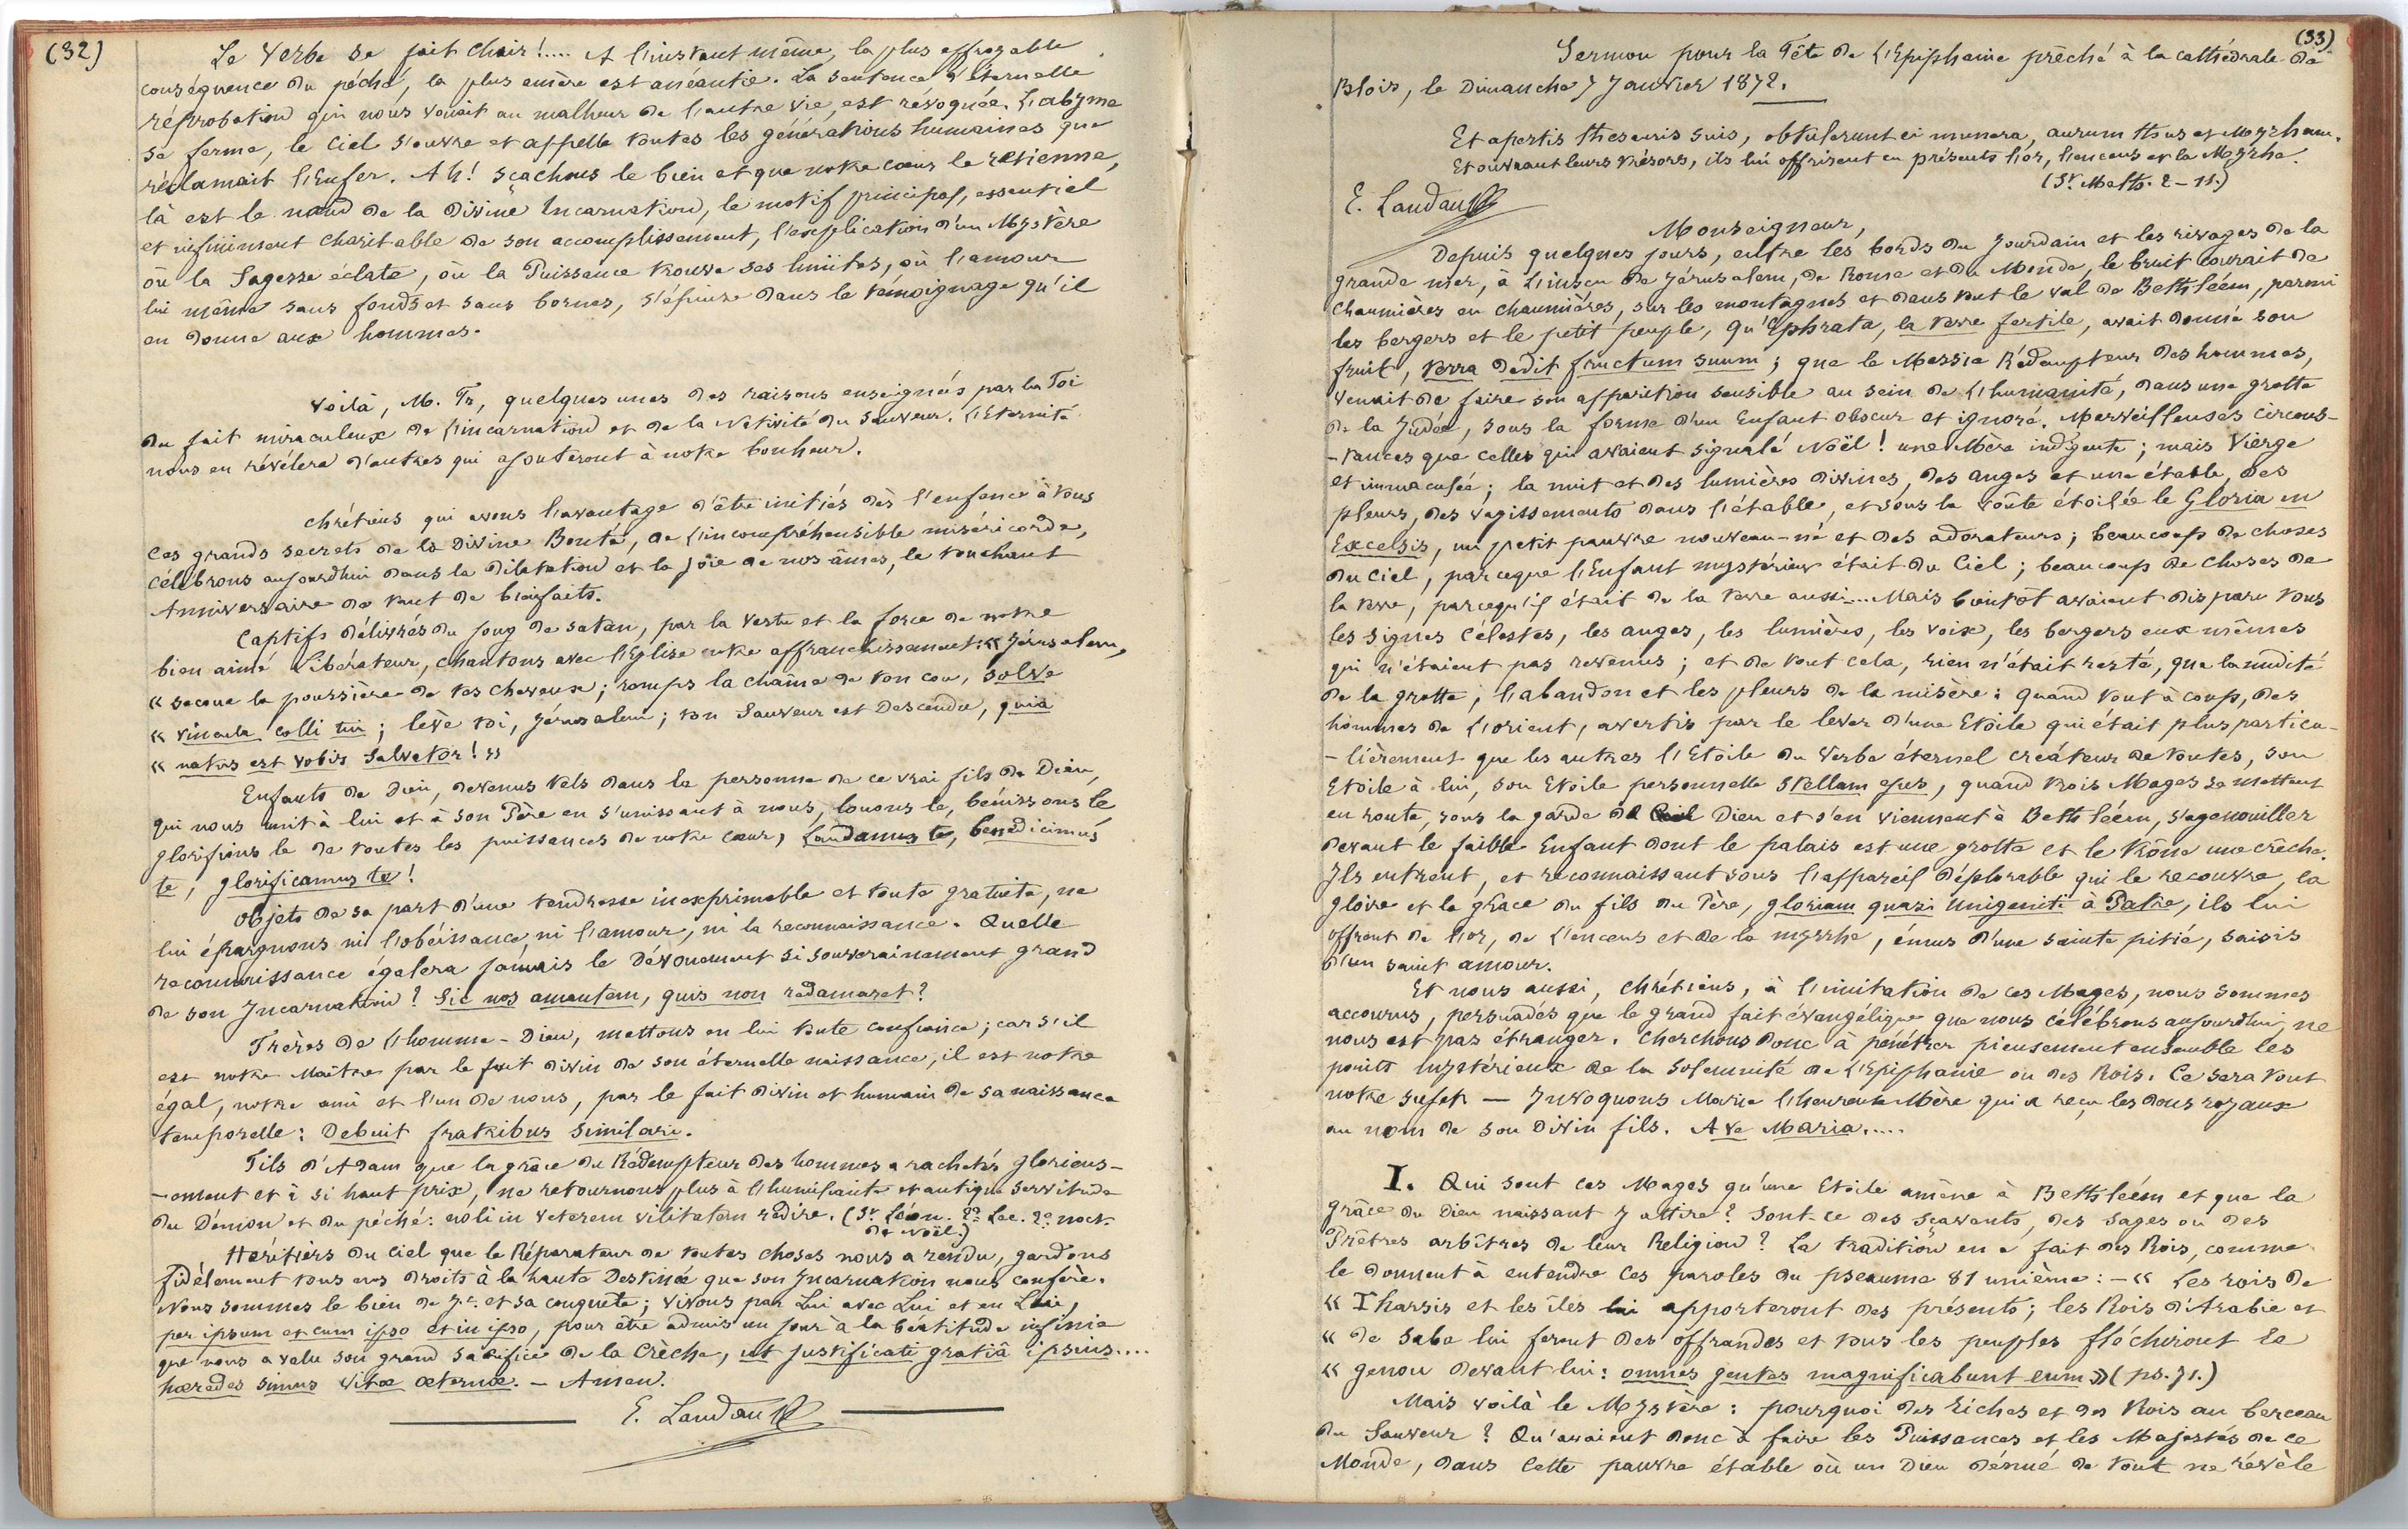 (32)
Le Verbe se fait chair !.... A l'instant même, la plus effroyable
conséquence du péché, la plus amère est anéantie. La sentence d'éternelle
réprobation qui nous vouait au malheur de l'autre vie, est révoquée. L'abyme
se ferme, le Ciel s'ouvre et appelle toutes les générations humaines que
réclamait l'Enfer. Ah ! sçachons le bien et que notre cœur le retienne,
là est le nœud de la Divine Incarnation, le motif principal, essentiel
et infiniment charitable de son accomplissement, l'explication d'un Mystère
où la Sagesse éclate, où la Puissance trouve ses limites, où l'amour
lui même sans fonds et sans bornes, s'épuise dans le témoignage qu'il
en donne aux hommes.
Voilà, M. Fr, quelques unes des raisons enseignées par la Foi
du fait miraculeux de l'incarnation et de la Nativité du Sauveur. L'Eternité
nous en révélera d'autres qui ajouteront à notre bonheur.
Chrétiens qui avons l'avantage d'être initiés dès l'enfance à tous
ces grands secrets de la Divine Bonté, de l'incompréhensible miséricorde,
célébrons aujourdhui dans la dilatation et la joie de nos âmes, le touchant
Anniversaire de tant de bienfaits.
Captifs délivrés du joug de satan, par la vertu et la force de notre
bien aimé Libérateur, chantons avec l'Eglise notre affranchissement : « Jérusalem,
« secoue la poussière de tes cheveux ; romps la chaîne de ton cou, solve
« vincula colli tui ; lève toi, Jérusalem ; ton Sauveur est Descendu, quia
« natus est vobis Salvator ! »
Enfants de Dieu, devenus tels dans la personne de ce vrai fils de Dieu,
qui nous unit à lui et à son Père en s'unissant à nous, louons le, bénissons le
glorifions le de toutes les puissances de notre cœur, Laudamus te, benedicimus
te, glorificamus te !
Objets de sa part d'une tendresse inexprimable et toute gratuite, ne
lui épargnons ni l'obéissance, ni l'amour, ni la reconnaissance. Quelle
reconnaissance égalera jamais le Dévouement si souverainement grand
de son Incarnation ? Sic nos amantem, quis non redamaret ?
Frères de l'homme-Dieu, mettons en lui toute confiance ; car s'il
est notre Maître par le fait divin de son éternelle naissance, il est notre
égal, notre ami et l'un de nous, par le fait divin et humain de sa naissance
temporelle : Debuit fratribus similari.
Fils d'Adam que la grâce du Rédempteur des hommes a rachetés glorieus-
-ement et à si haut prix, ne retournons plus à l'humiliante et antique servitude
du Démon et du péché : noli in veterem vilitatem redire. (St. Léon. 2a. Lec. 2o noct.
de Noël.)
Héritiers du Ciel que le Réparateur de toutes choses nous a rendu, gardons
fidèlement tous nos droits à la haute Destinée que son Incarnation nous confère.
Nous sommes le bien de J.C. et sa conquête ; vivons par Lui avec Lui et en Lui,
per ipsum et cum ipso et in ipso, pour être admis un jour à la béatitude infinie
que nous a valu son grand sacrifice de la Crèche, ut justificati gratiâ ipsius....
hæredes simus vitæ æternæ. - Amen.
E. Landault
(33)
Sermon pour la Fête de l'Epiphanie prêché à la cathédrale de
Blois, le Dimanche 7 Janvier 1872.
Et apertis thesauris suis, obtulerunt ei munera, aurum thus et Myrrham.
Et ouvrant leurs trésors, ils lui offrirent en présents l'or, l'encens et la Myrrhe.
(St. Matth. 2-11.)
E. Landault
Monseigneur,
Depuis quelques jours, entre les bords du Jourdain et les rivages de la
grande mer, à l'insçu de Jérusalem, de Rome et du Monde, le bruit courait de
chaumières en chaumières, sur les montagnes et dans tout le val de Bethléem, parmi
les bergers et le petit peuple, qu'Ephrata, la terre fertile, avait donné son
fruit, terra dedit fructum suum ; que le Messie Rédempteur des hommes,
venait de faire son apparition sensible au sein de l'humanité, dans une grotte
de la Judée, sous la forme d'un Enfant obscur et ignoré. Merveilleuses circons-
-tances que celles qui avaient signalé Noël ! une Mère indigente ; mais Vierge
et immaculée ; la nuit et des lumières divines, des anges et une étable, des
pleurs, des vagissements dans l'étable, et sous la voûte étoilée le Gloria in
Excelsis, un petit pauvre nouveau-né et des adorateurs ; beaucoup de choses
du Ciel, parceque l'Enfant mystérieux était du Ciel ; beaucoup de choses de
la terre, parcequ'il était de la terre aussi.... Mais bientôt avaient disparu tous
les signes célestes, les anges, les lumières, les voix, les bergers eux mêmes
qui n'étaient pas revenus ; et de tout cela, rien n'était resté, que la nudité
de la grotte, l'abandon et les pleurs de la misère : quand tout à coup, des
hommes de l'orient, avertis par le lever d'une Etoile qui était plus particu-
-lièrement que les autres l'Etoile du Verbe éternel créateur de toutes, son
Etoile à lui, son Etoile personnelle Stellam ejus, quand trois Mages se mettent
en route, sous la garde de Dieu et s'en viennent à Bethléem, s'agenouiller
devant le faible Enfant dont le palais est une grotte et le trône une crèche.
Ils entrent, et reconnaissant sous l'appareil déplorable qui le recouvre, la
gloire et la grâce du fils du Père, gloriam quasi Unigeniti à Patre, ils lui
offrent de l'or, de l'encens et de la myrrhe, émus d'une sainte pitié, saisis
d'un saint amour.
Et nous aussi, Chrétiens, à l'imitation de ces Mages, nous sommes
accourus, persuadés que le grand fait évangélique que nous célébrons aujourdhui, ne
nous est pas étranger. Cherchons donc à pénétrer pieusement ensemble les
points mystérieux de la solennité de l'Epiphanie ou des Rois. Ce sera tout
notre sujet — Invoquons Marie l'heureuse Mère qui a reçu les dons royaux
au nom de son Divin fils. Ave Maria.....
I. Qui sont ces Mages qu'une Etoile amène à Bethléem et que la
grâce du Dieu naissant y attire ? Sont-ce des sçavants, des sages ou des
Prêtres arbitres de leur Religion ? La tradition en a fait des Rois, comme
le donnent à entendre ces paroles du pseaume 81 unième : - « Les rois de
« Tharsis et les îles lui apporteront des présents ; les Rois d'Arabie et
« de Saba lui feront des offrandes et tous les peuples fléchiront le
« genou devant lui : omnes gentes magnificabunt eum » (ps. 71.)
Mais voilà le Mystère : pourquoi des riches et des Rois au berceau
du Sauveur ? Qu'avaient donc à faire les Puissances et les Majestés de ce
Monde, dans cette pauvre étable où un Dieu dénué de tout ne révèle